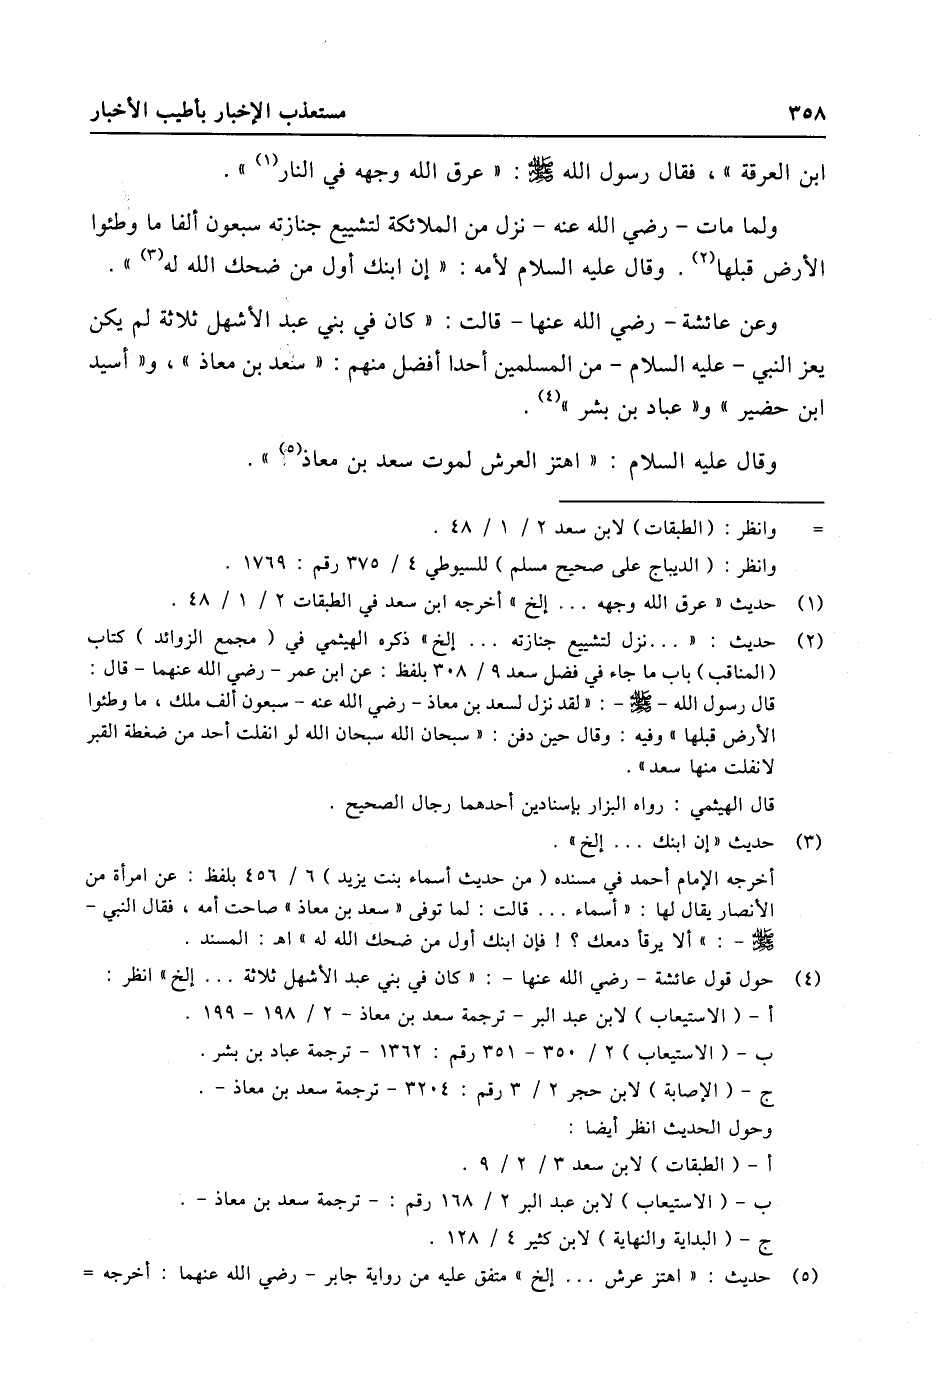 ٣٥٨ مستعذب الإخبار بأطيب الأخبار
ابن العرقة » ، فقال رسول الله ﷺ : « عرق الله وجهه في النار(١) » .
ولما مات – رضي الله عنه – نزل من الملائكة لتشييع جنازته سبعون ألفا ما وطئوا
الأرض قبلها(٢) . وقال عليه السلام لأمه : « إن ابنك أول من ضحك الله له(٣) » .
وعن عائشة – رضي الله عنها – قالت : « كان في بني عبد الأشهل ثلاثة لم يكن
يعز النبي – عليه السلام – من المسلمين أحدا أفضل منهم : « سعد بن معاذ » ، و« أسيد
ابن حضير » و« عباد بن بشر »(٤) .
وقال عليه السلام : « اهتز العرش لموت سعد بن معاذ(٥) » .
= وانظر : (الطبقات) لابن سعد ٢ / ١ / ٤٨ .
وانظر : ( الديباج على صحيح مسلم ) للسيوطي ٤ / ٣٧٥ رقم : ١٧٦٩ .
(١) حديث « عرق الله وجهه ... إلخ » أخرجه ابن سعد في الطبقات ٢ / ١ / ٤٨ .
(٢) حديث : « ...نزل لتشييع جنازته ... إلخ» ذكره الهيثمي في ( مجمع الزوائد ) كتاب
(المناقب) باب ما جاء في فضل سعد ٩ / ٣٠٨ بلفظ : عن ابن عمر – رضي الله عنهما – قال :
قال رسول الله – ﷺ – : «لقد نزل لسعد بن معاذ – رضي الله عنه – سبعون ألف ملك ، ما وطئوا
الأرض قبلها » وفيه : وقال حين دفن : « سبحان الله سبحان الله لو انفلت أحد من ضغطة القبر
لانفلت منها سعد» .
قال الهيثمي : رواه البزار بإسنادين أحدهما رجال الصحيح .
(٣) حديث «إن ابنك ... إلخ» .
أخرجه الإمام أحمد في مسنده ( من حديث أسماء بنت يزيد ) ٦ / ٤٥٦ بلفظ : عن امرأة من
الأنصار يقال لها : « أسماء ... قالت : لما توفى « سعد بن معاذ » صاحت أمه ، فقال النبي –
ﷺ – : » ألا يرقأ دمعك ؟ ! فإن ابنك أول من ضحك الله له » اهـ : المسند .
(٤) حول قول عائشة – رضي الله عنها – : « كان في بني عبد الأشهل ثلاثة ... إلخ» انظر :
أ – ( الاستيعاب ) لابن عبد البر – ترجمة سعد بن معاذ – ٢ / ١٩٨ – ١٩٩ .
ب – ( الاستيعاب ) ٢ / ٣٥٠ – ٣٥١ رقم : ١٣٦٢ – ترجمة عباد بن بشر .
ج – ( الإصابة ) لابن حجر ٢ / ٣ رقم : ٣٢٠٤ – ترجمة سعد بن معاذ – .
وحول الحديث انظر أيضا :
أ – ( الطبقات ) لابن سعد ٣ / ٢ / ٩ .
ب – ( الاستيعاب ) لابن عبد البر ٢ / ١٦٨ رقم : – ترجمة سعد بن معاذ – .
ج – ( البداية والنهاية ) لابن كثير ٤ / ١٢٨ .
(٥) حديث : « اهتز عرش ... إلخ » متفق عليه من رواية جابر – رضي الله عنهما : أخرجه =